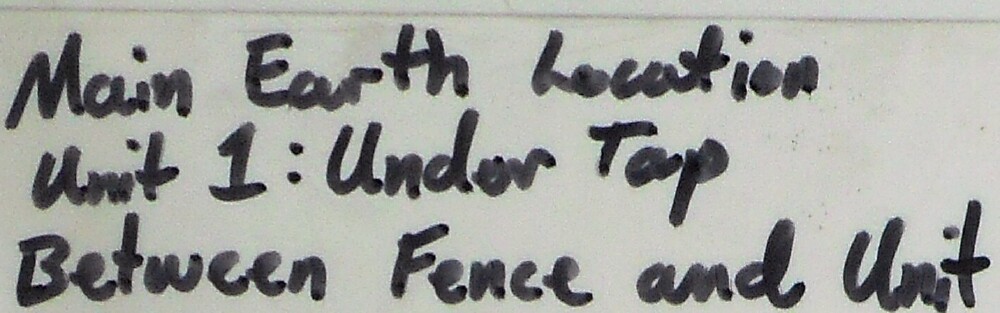 Main Earth Location
Unit 1: Under Tap
Between Fence and Unit